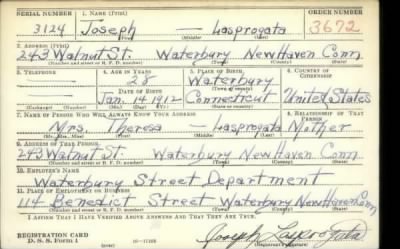 SERIAL NUMBER 1. NAME (Print) ORDER NUMBER
3124 Joseph — Lasprogata 3672
(First) (Middle) (Last)
2. ADDRESS (Print)
243 Walnut St. Waterbury New Haven Conn
(Number and street or R. F. D. number) (Town) (County) (State)
3. TELEPHONE 4. AGE IN YEARS 5. PLACE OF BIRTH 6. COUNTRY OF CITIZENSHIP
28 Waterbury
DATE OF BIRTH (Town or county)
Jan. 14 1912 Connecticut United States
(Exchange) (Number) (Mo.) (Day) (Yr.) (State or country)
7. NAME OF PERSON WHO WILL ALWAYS KNOW YOUR ADDRESS 8. RELATIONSHIP OF THAT PERSON
Mrs. Theresa — Lasprogata Mother
(Mr., Mrs., Miss) (First) (Middle) (Last)
9. ADDRESS OF THAT PERSON
243 Walnut St. Waterbury New Haven Conn
(Number and street or R. F. D. number) (Town) (County) (State)
10. EMPLOYER'S NAME
Waterbury Street Department
11. PLACE OF EMPLOYMENT OR BUSINESS
114 Benedict Street Waterbury New Haven Conn
(Number and street or R. F. D. number) (Town) (County) (State)
I AFFIRM THAT I HAVE VERIFIED ABOVE ANSWERS AND THAT THEY ARE TRUE.
REGISTRATION CARD
D. S. S. Form 1 16-17105 Joseph Lasprogata
(Registrant's signature)